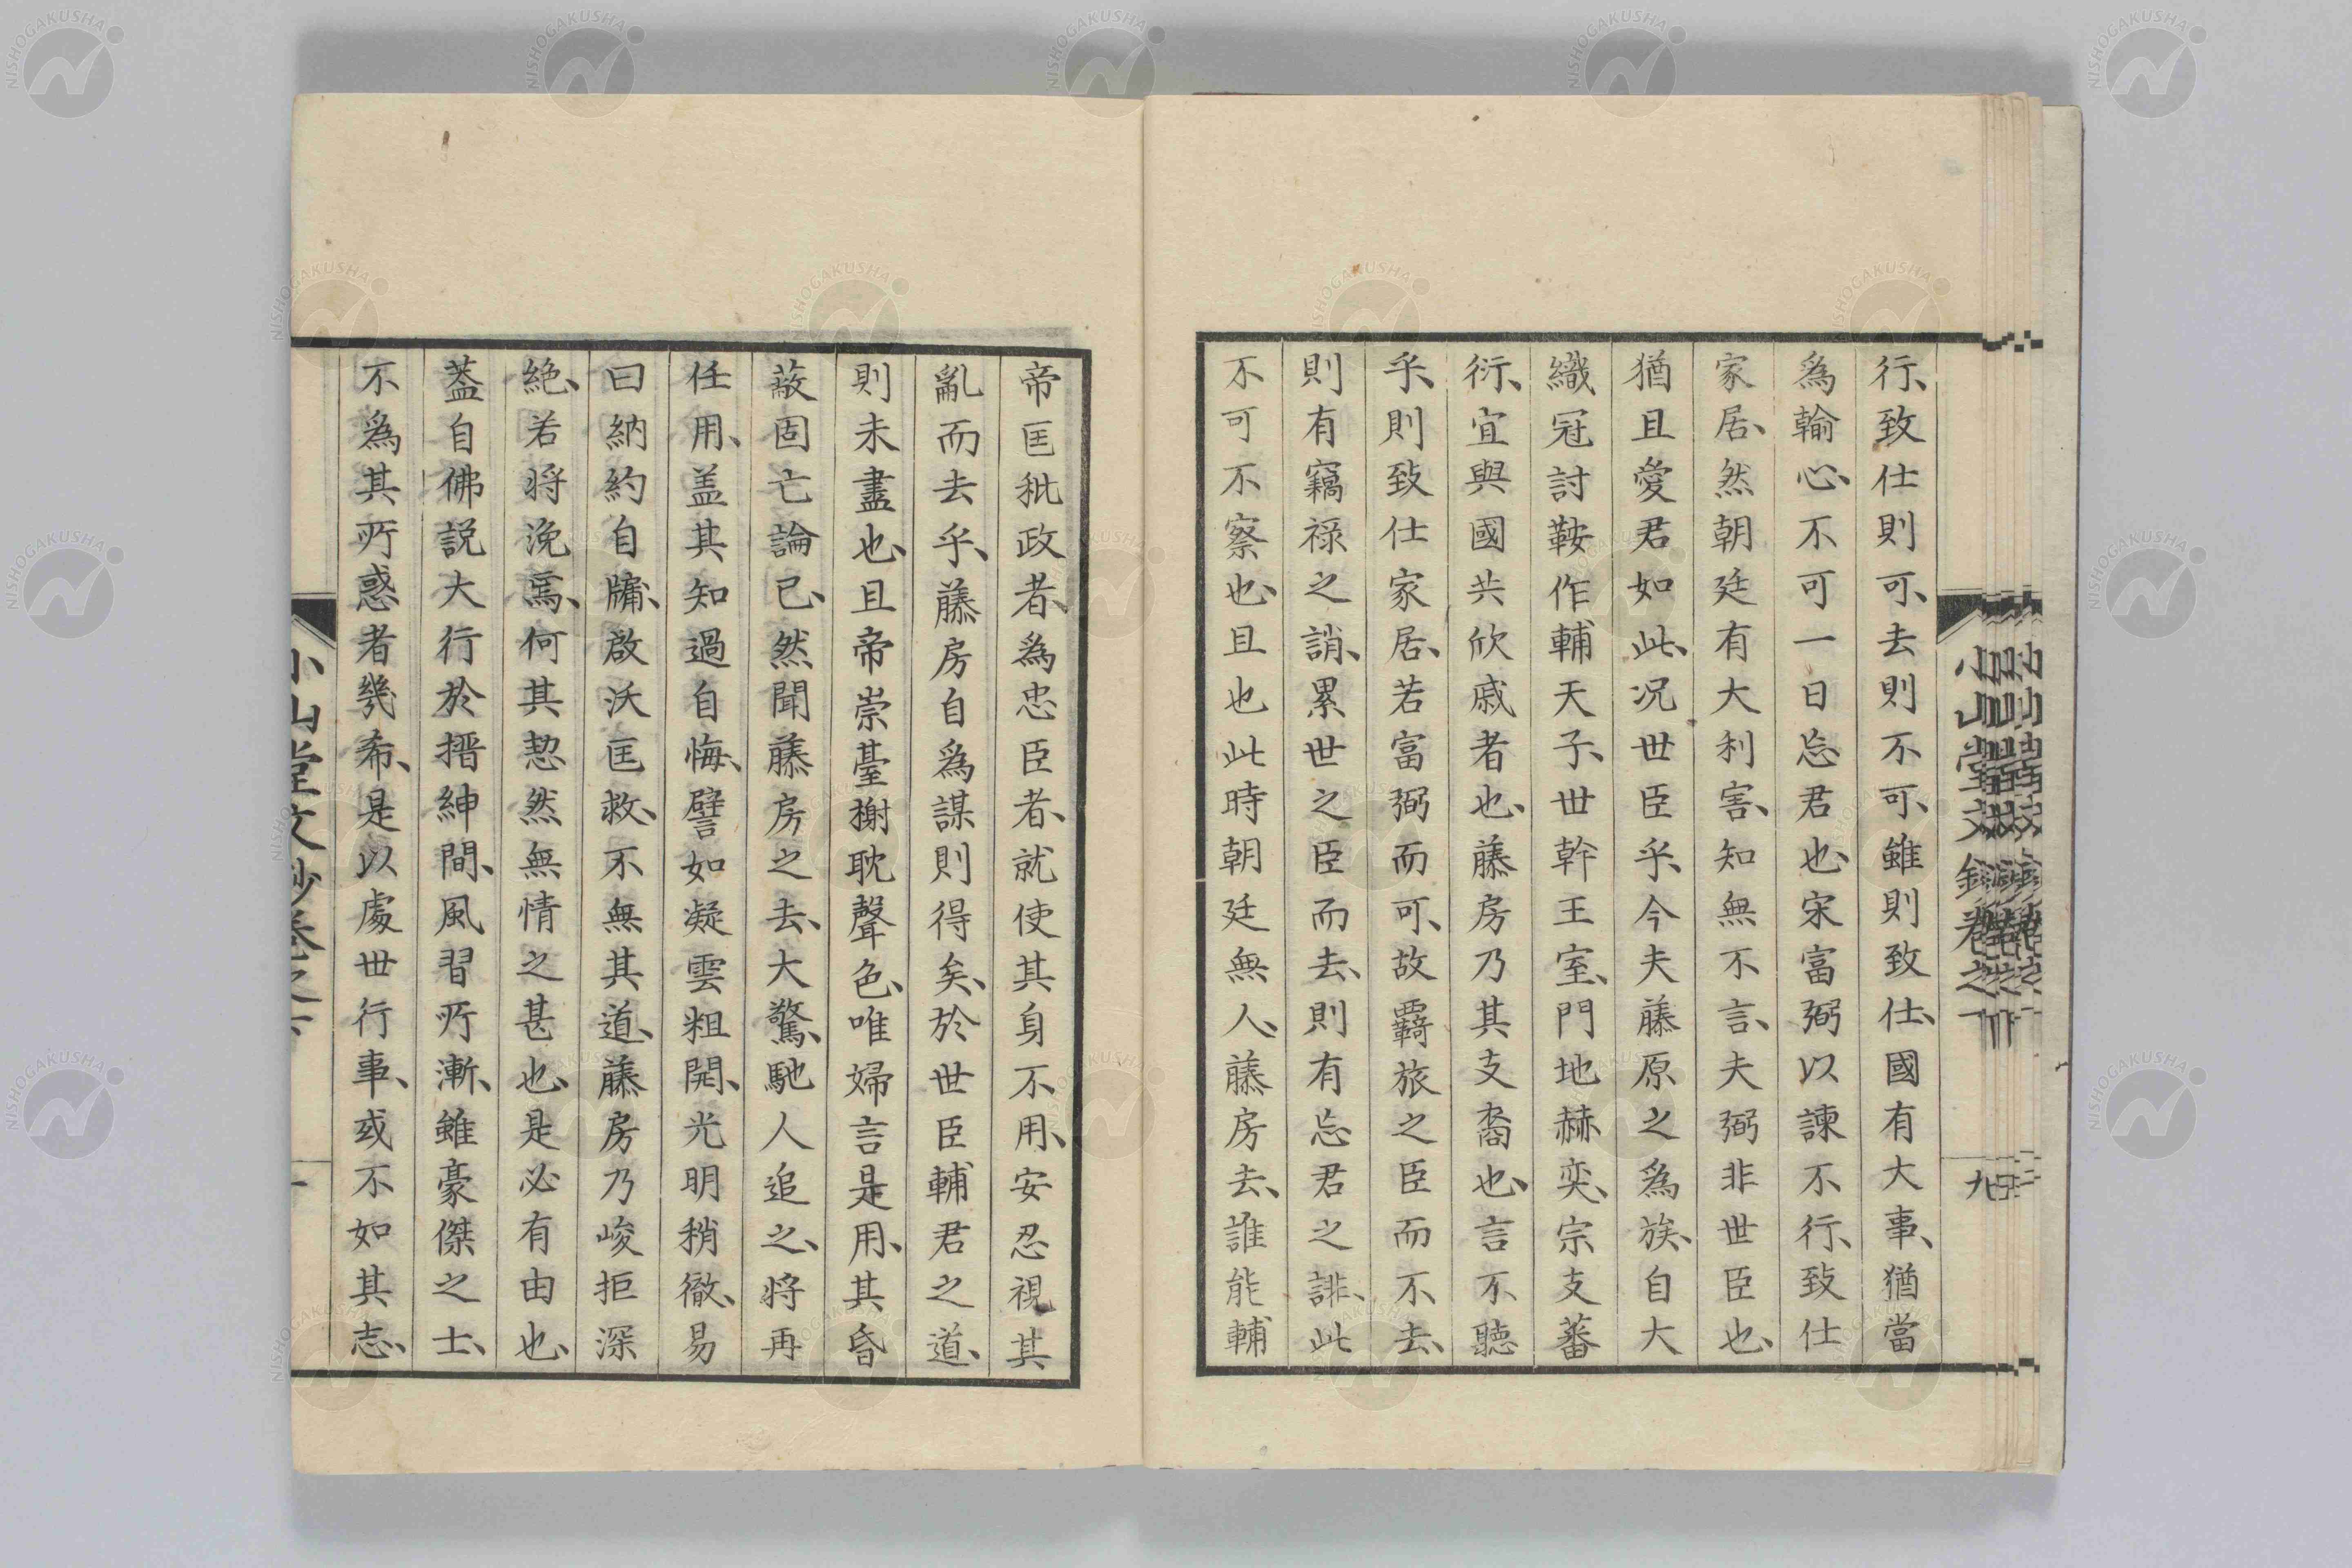 行、致仕則可、去則不可、雖則致仕、國有大事、猶當
爲輸心、不可一日忘君也、宋富弼以諫不行、致仕
家居、然朝廷有大利害、知無不言、夫弼非世臣也、
猶且愛君如此、況世臣乎、今夫藤原之爲族、自大
織冠討鞍作輔天子、世幹王室、門地赫奕、宗支蕃
衍、宜與國共欣戚者也、藤房乃其支裔也、言不聽
乎、則致仕家居、若富弼而可、故羇旅之臣而不去、
則有竊祿之誚、累世之臣而去、則有忘君之誹、此
不可不察也、且也此時朝廷無人、藤房去、誰能輔
小山堂文鈔卷之一
九
帝匡秕政者、爲忠臣者、就使其身不用、安忍視其
亂而去乎、藤房自爲謀則得矣、於世臣輔君之道、
則未盡也、且帝崇臺榭耽聲色、唯婦言是用、其昏
蔽固亡論已、然聞藤房之去、大驚、馳人追之、將再
任用、盖其知過自悔、譬如凝雲粗開、光明稍徹、易
曰納約自牖、啟沃匡救、不無其道、藤房乃峻拒深
絶、若將浼焉、何其恝然無情之甚也、是必有由也、
葢自佛説大行於搢紳間、風習所漸、雖豪傑之士、
不爲其所惑者幾希、是以處世行事、或不如其志、
小山堂文鈔卷之